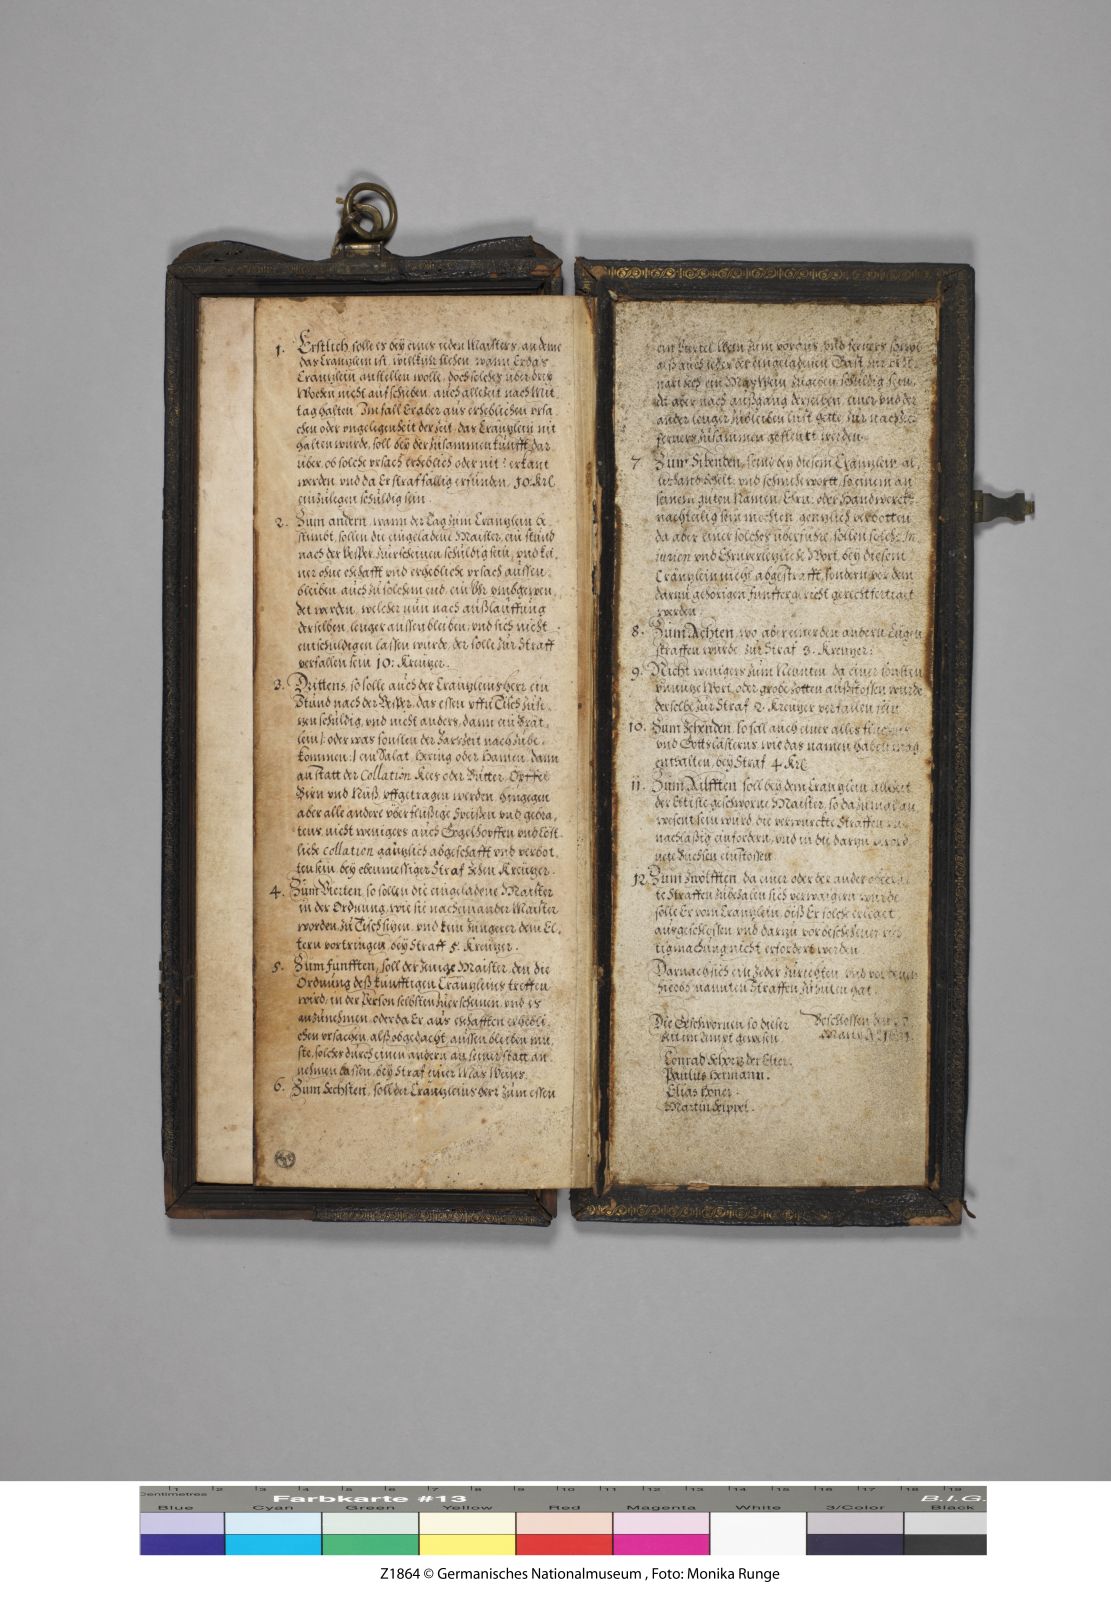 1. Erstlich solle es bey eines ieden Maisters, an deme
das Cränzlein ist, willkür stehen, wann Er das
Cränzlein anstellen wolle, doch solches über drey
Wochen nicht aufschieben, auch allezeit nach Mit
tag halten. Im fall Er aber aus erheblichen ursa
chen oder ungelegenheit der zeit, das Cränzlein nit
halten würde, soll bey der zusammenkunfft dar
über, ob solche ursach erheblich oder nit? erkant
werden und da Er straffällig erfunden, 10. Krl.
einzulegen schuldig sein.
2. Zum andern, wann der Tag zum Cränzlein be
stimbt, sollen die eingeladene Maister, ein stund
nach der Vesper, zuerscheinen schuldig sein, und kei
ner ohne ehehafft und erhebliche ursach aussen
bleiben, auch zu solchem end, ein Uhr umbgewen
det werden, welcher nun nach außlauffung
derselben, lenger aussenbleiben, und sich nicht
entschuldigen lassen wurde, der solle zur Straff
verfallen sein 10: Kreuzer.
3. Drittens, so solle auch der Cränzleinsherr ein
Stund nach der Vesper, das essen uffn Tisch zuse
zen schuldig, und nicht anders, dann ein Brät
lein /: oder was sonsten der Jarszeit nach zube
kommen :/ ein Salat, Hering oder Hamen, dann
an statt der Collation Kees oder Butter, Öpffel
Birn und Nüß, uffgetragen werden. Hingegen
aber alle andere überflüßige Speißen und gebra
tens, nicht wenigers auch Gogelhopffen und köst
liche Collation gänzlich abgeschafft und verbot
ten sein bey ebenmessiger Straf Zehen Kreuzer.
4. Zum Vierten, so sollen die eingeladene Maister
in der Ordnung, wie sie nacheinander Maister
worden, zu Tisch sizen, und kein Jüngerer dem El
tern vortringen, bey Straff 5. Kreuzer.
5. Zum Fünfften, soll der Jenige Maister, den die
Ordnung deß künfftigen Cränzleins treffen
wird, in der Person selbsten zuerscheinen, und es
anzunehmen, oder da Er aus ehehafften erhebli
chen ursachen, alß obgedacht, aussen bleiben mü
ste, solches durch einen andern an seiner statt an
nehmen lassen, bey Straf einer Mas Weins.
6. Zum Sechsten, soll der Cränzleins Herr zum essen
ein Viertel Wein zum voraus, und ferners
alß auch ieder der eingeladenen Gäst
noch ein Mas Wein zugeben schuldig sein,
da aber nach außgang derselben, einer und der
ander lenger zubleiben lust hette,
ferners zusammen geschenkt werden.
7. Zum Sibenden, seind bey diesem Cränzlein al
lerhand Schelt und schmehewortt, so einem an
seinem guten Namen, Ehrn, oder Handwerck
nachteilig sein möchten, genzlich verbotten
da aber einer solches überführe, sollen solche In
jurien und Ehrnverlezliche Wort, bey diesem
Cränzlein nicht abgestrafft, sondern vor dem
darzu gehörigen fünffergericht gerechtfertiget
werden.
8. Zum Achten, wo aber einer den andern Lügen
straffen würde, zur Straf 3. Kreuzer.
9. Nicht wenigers zum Neunten, da einer sonsten
unnuze Wort, oder grobe zotten außstossen würde
derselbe zur Straf 2. Kreuzer verfallen sein.
10. Zum Zehenden, so soll auch einer alles fluchens
und Gottslästerns, wie das namen haben mag
enthalten, bey Straf 4. Krl.
11. Zum Ailfften, soll bey dem Cränzlein allezeit
der Elteste geschworne Maister, so dazumal an
wesent sein würd, die verwürckte Straffen un
nachläßig einfordern, und in die darzu verord
nete Büchsen einstossen.
12. Zum Zwölfften, da einer oder der ander
te Straffen zubezalen sich verwaigern wurde
solle Er vom Cränzlein, biß Er solche erleget
ausgeschlossen, und darzu vor beschehener rich
tigmachung nicht erfordert werden.
Darnach sich ein Jeder zurichten, und vor
hieoben nannten Straffen zuhüten hat.
Die Geschwornen so dieser
Zeit im Ampt gewesen.
Beschlossen den
Martij Ao.
Conrad Schorz der Elter.
Paulus Hermann.
Elias Höner.
Martin Seippel.
Centimetres 1 2 3 4 5 6 7 8 9 10 11 12 13 14 15 16 17 18 19
Farbkarte #13 B.I.G.
Blue Cyan Green Yellow Red Magenta White 3/Color Black
Z1864 © Germanisches Nationalmuseum , Foto: Monika Runge